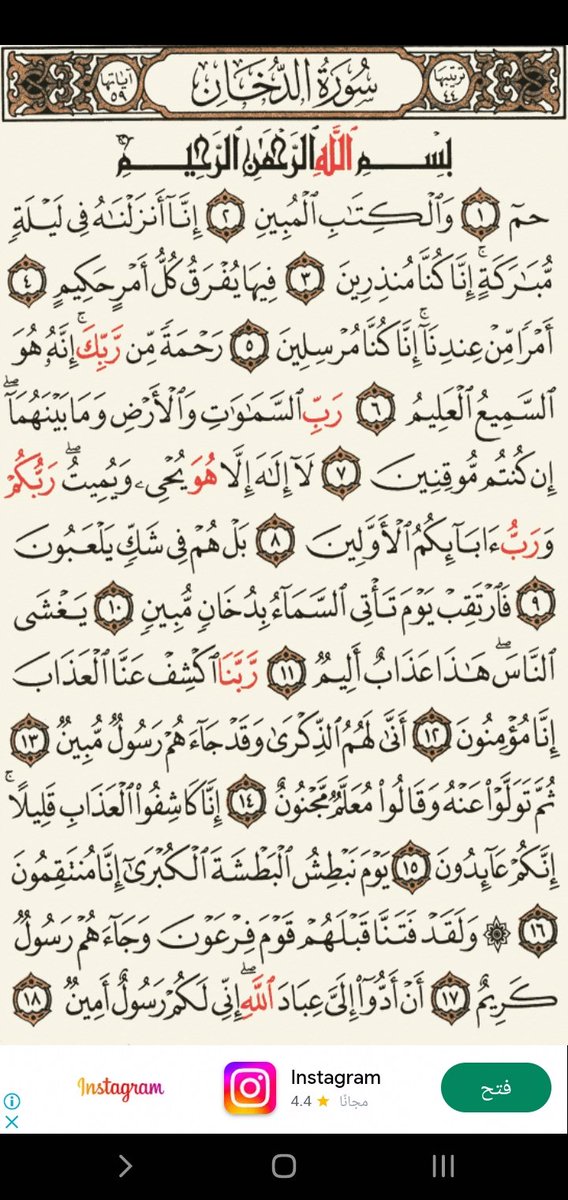 ترتيبها ٤٤ سُورَةُ الدُّخَانِ آياتها ٥٩
بِسْمِ ٱللَّهِ ٱلرَّحْمَٰنِ ٱلرَّحِيمِ
حمٓ ١ وَٱلْكِتَٰبِ ٱلْمُبِينِ ٢ إِنَّآ أَنزَلْنَٰهُ فِى لَيْلَةٍ
مُّبَٰرَكَةٍ ۚ إِنَّا كُنَّا مُنذِرِينَ ٣ فِيهَا يُفْرَقُ كُلُّ أَمْرٍ حَكِيمٍ ٤
أَمْرًا مِّنْ عِندِنَآ ۚ إِنَّا كُنَّا مُرْسِلِينَ ٥ رَحْمَةً مِّن رَّبِّكَ ۚ إِنَّهُۥ هُوَ
ٱلسَّمِيعُ ٱلْعَلِيمُ ٦ رَبِّ ٱلسَّمَٰوَٰتِ وَٱلْأَرْضِ وَمَا بَيْنَهُمَآ ۖ
إِن كُنتُم مُّوقِنِينَ ٧ لَآ إِلَٰهَ إِلَّا هُوَ يُحْىِۦ وَيُمِيتُ ۖ رَبُّكُمْ
وَرَبُّ ءَابَآئِكُمُ ٱلْأَوَّلِينَ ٨ بَلْ هُمْ فِى شَكٍّ يَلْعَبُونَ
٩ فَٱرْتَقِبْ يَوْمَ تَأْتِى ٱلسَّمَآءُ بِدُخَانٍ مُّبِينٍ ١٠ يَغْشَى
ٱلنَّاسَ ۖ هَٰذَا عَذَابٌ أَلِيمٌ ١١ رَّبَّنَا ٱكْشِفْ عَنَّا ٱلْعَذَابَ
إِنَّا مُؤْمِنُونَ ١٢ أَنَّىٰ لَهُمُ ٱلذِّكْرَىٰ وَقَدْ جَآءَهُمْ رَسُولٌ مُّبِينٌ ١٣
ثُمَّ تَوَلَّوْا۟ عَنْهُ وَقَالُوا۟ مُعَلَّمٌ مَّجْنُونٌ ١٤ إِنَّا كَاشِفُوا۟ ٱلْعَذَابِ قَلِيلًا ۚ
إِنَّكُمْ عَآئِدُونَ ١٥ يَوْمَ نَبْطِشُ ٱلْبَطْشَةَ ٱلْكُبْرَىٰٓ إِنَّا مُنتَقِمُونَ
١٦ ۞ وَلَقَدْ فَتَنَّا قَبْلَهُمْ قَوْمَ فِرْعَوْنَ وَجَآءَهُمْ رَسُولٌ
كَرِيمٌ ١٧ أَنْ أَدُّوٓا۟ إِلَىَّ عِبَادَ ٱللَّهِ ۖ إِنِّى لَكُمْ رَسُولٌ أَمِينٌ ١٨
Instagram
Instagram
4.4 ★ مجانًا
فتح